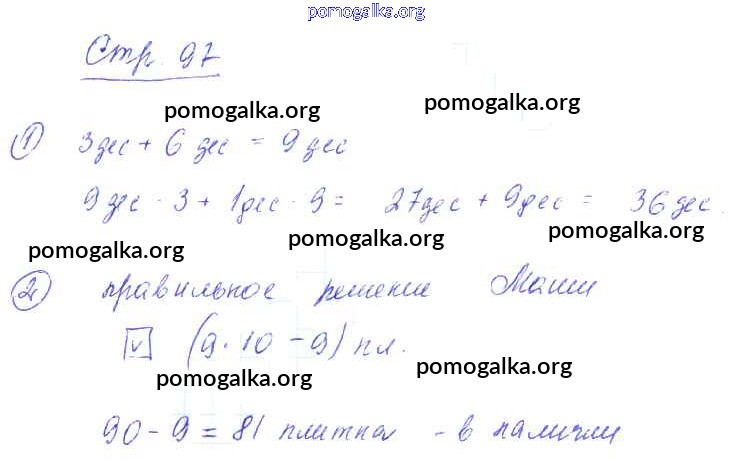 pomogalka.org
Стр. 97
pomogalka.org pomogalka.org
① 3 дес + 6 дес = 9 дес
9 дес · 3 + 1 дес · 9 = 27 дес + 9 дес = 36 дес.
pomogalka.org pomogalka.org pomogalka.org
② правильное решение Маши
v (9 · 10 - 9) пл.
pomogalka.org pomogalka.org
90 - 9 = 81 плитка - в наличии